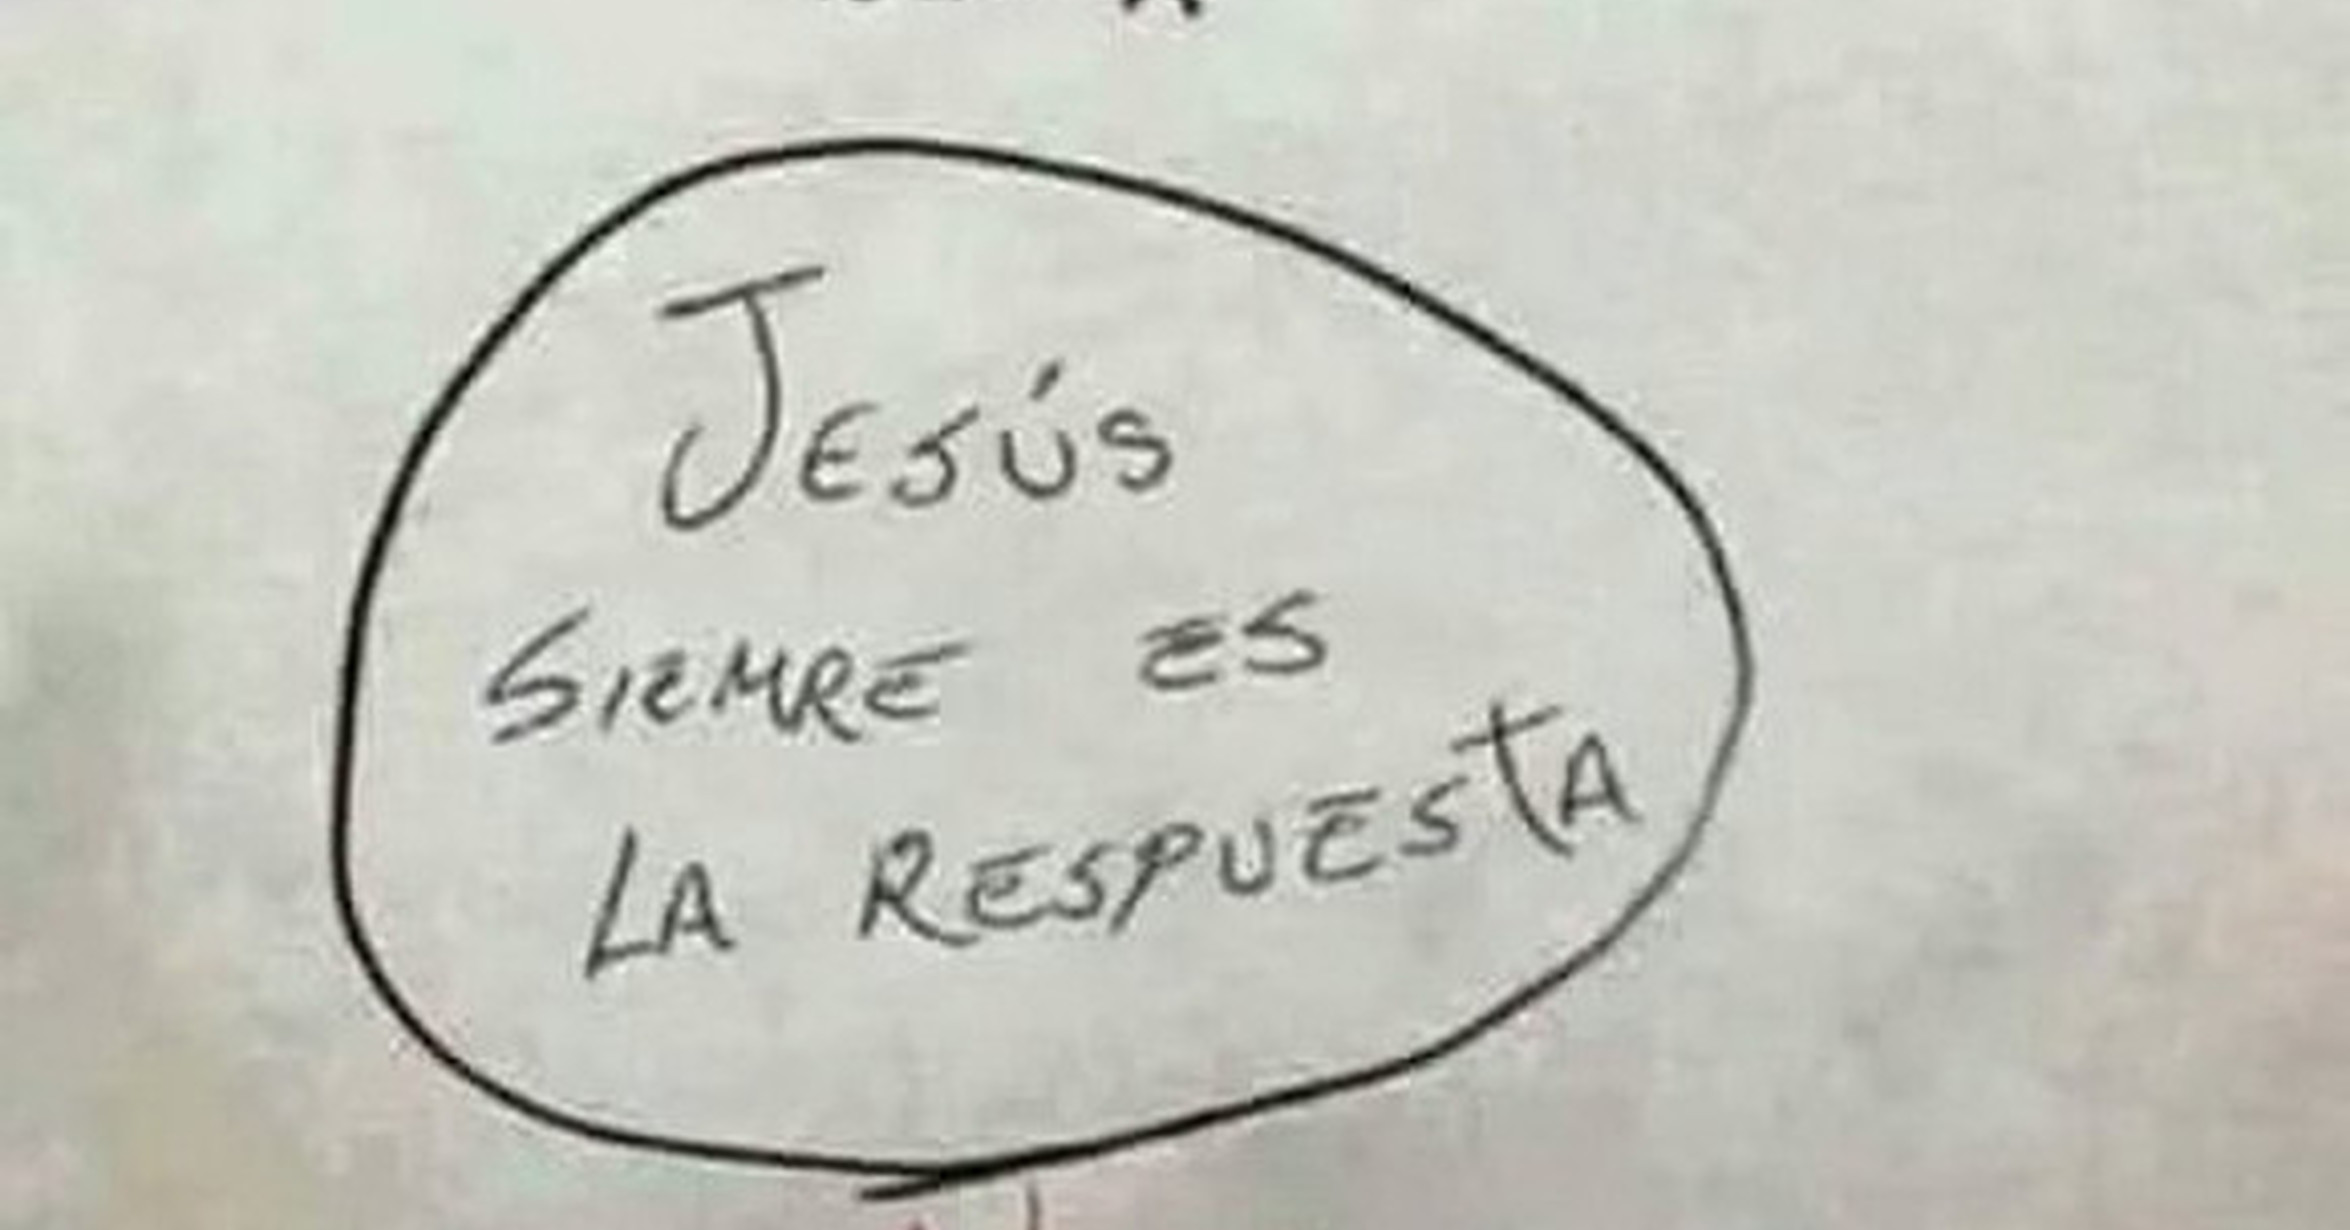 JESÚS
SIEMRE ES
LA RESPUESTA